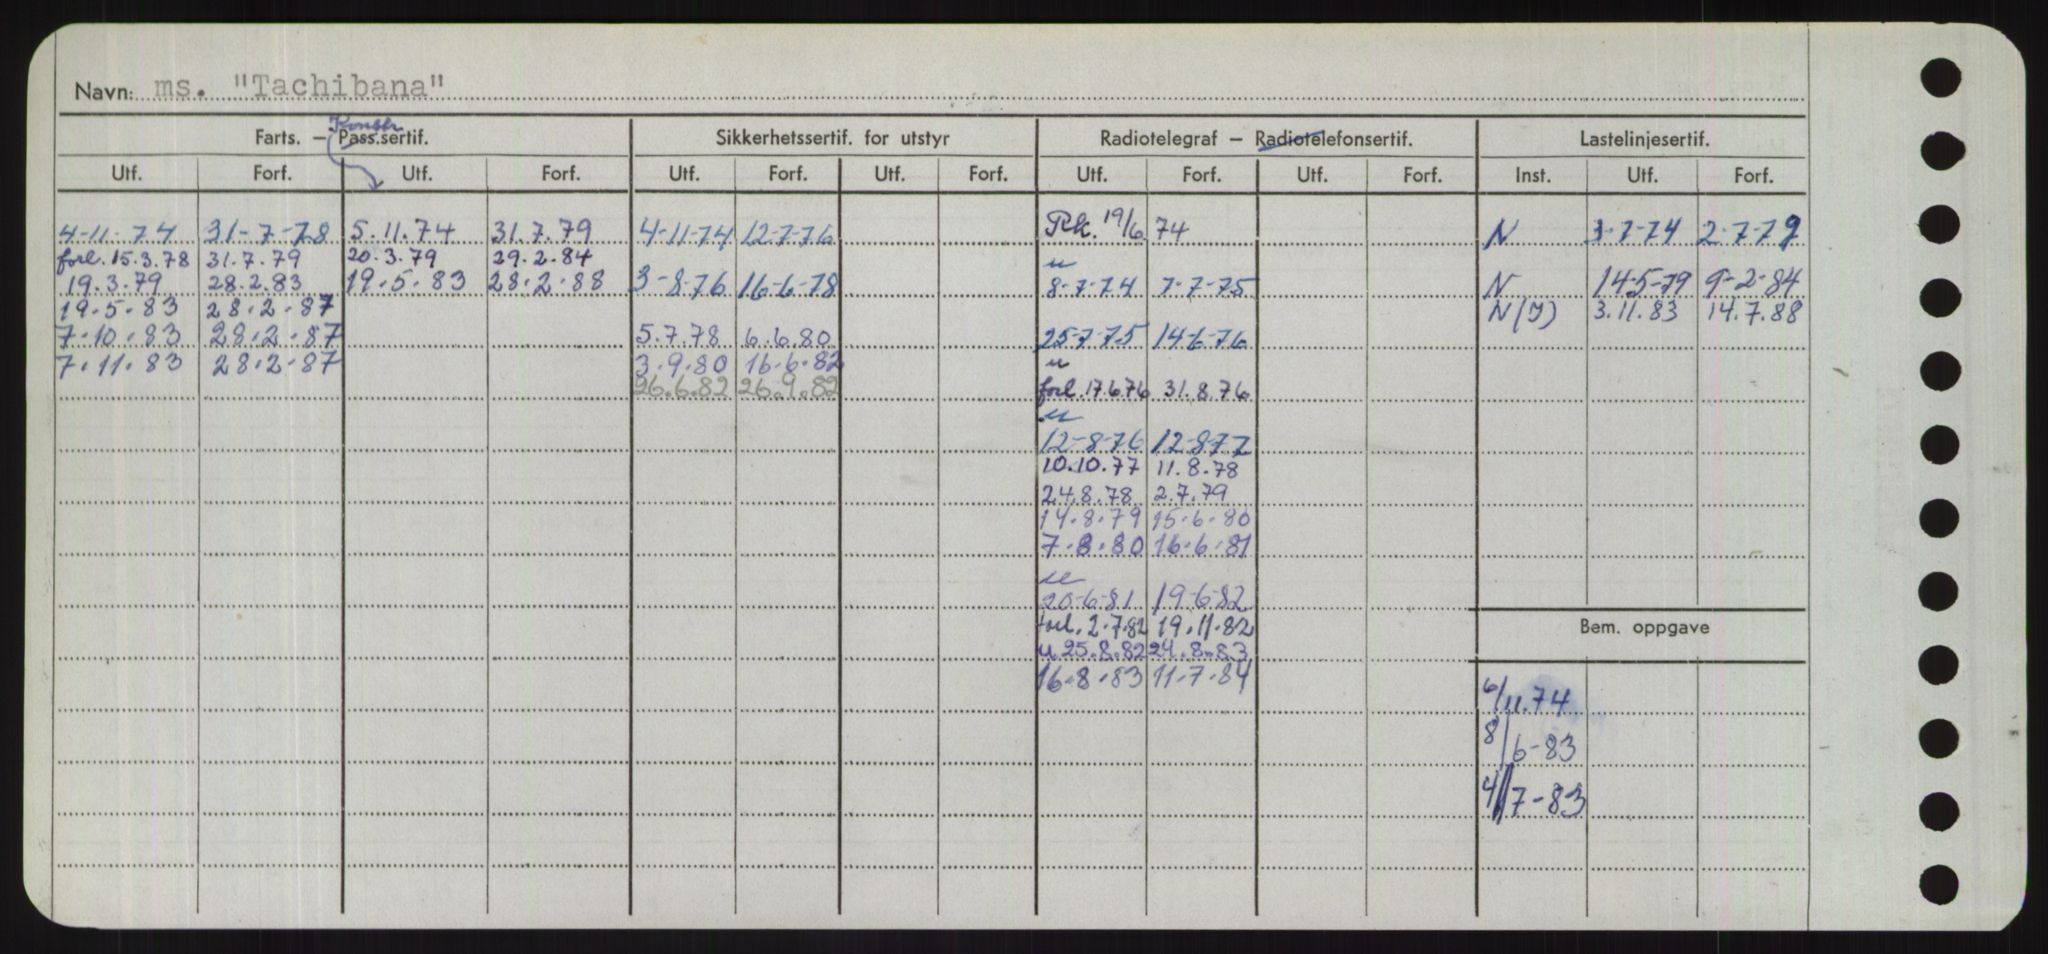 Navn: ms. "Tachibana"
Konstr
Farts. — Pass.sertif. Sikkerhetssertif. for utstyr Radiotelegraf — Radiotelefonsertif. Lastelinjesertif.
Utf. Forf. Utf. Forf. Utf. Forf. Utf. Forf. Utf. Forf. Utf. Forf. Inst. Utf. Forf.
4-11-74 31-7-78 5.11.74 31.7.79 4-11-74 12-7-76 Rk. 19/6 74 N 3-7-74 2-7-79
forl. 15.3.78 31.7.79 20.3.79 29.2.84 u
19.3.79 28.2.83 19.5.83 28.2.88 3-8-76 16-6-78 8-7-74 7-7-75 N 14-5-79 9-2-84
19.5.83 28.2.87 N(I) 3.11.83 14.7.88
7.10.83 28.2.87 5.7.78 6.6.80 25-7-75 14-6-76
7.11.83 28.2.87 3.9.80 16.6.82 u
26.6.82 26.9.82 forl. 17.6.76 31.8.76
u
12-8-76 12-8-77
10.10.77 11.8.78
24.8.78 2.7.79
14.8.79 15.6.80
7.8.80 16.6.81
u
20-6-81 19-6-82
forl. 2.7.82 19.11.82
u 25.8.82 24.8.83
16.8.83 11.7.84
Bem. oppgave
6/11.74
8/6-83
4/7-83